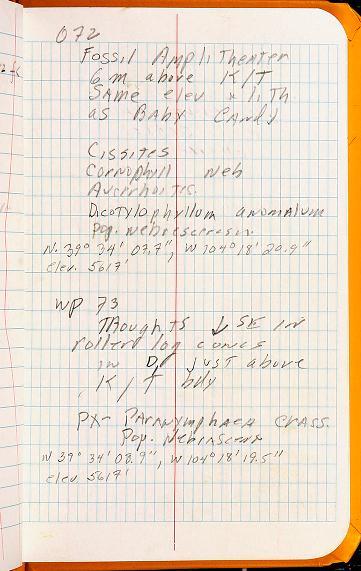 072
Fossil Amphitheater
6 m above K/T
SAME elev + lith
as BABY CANdy
Cissites
Cornophyll Neb
Averrhoites
Dicotylophyllum anomalum
Pop. nebrascensis
N. 39° 34' 07.7", W 104° 18' 20.9"
elev. 5617'
WP 73
Thoughts ↓ SE IN
rollerd log comics
in D, JUST above
K/T bdy
PX- PARANymphaea CRASS.
Pop. Nebrascens
N 39° 34' 08.9", W 104° 18' 19.5"
elev 5617'